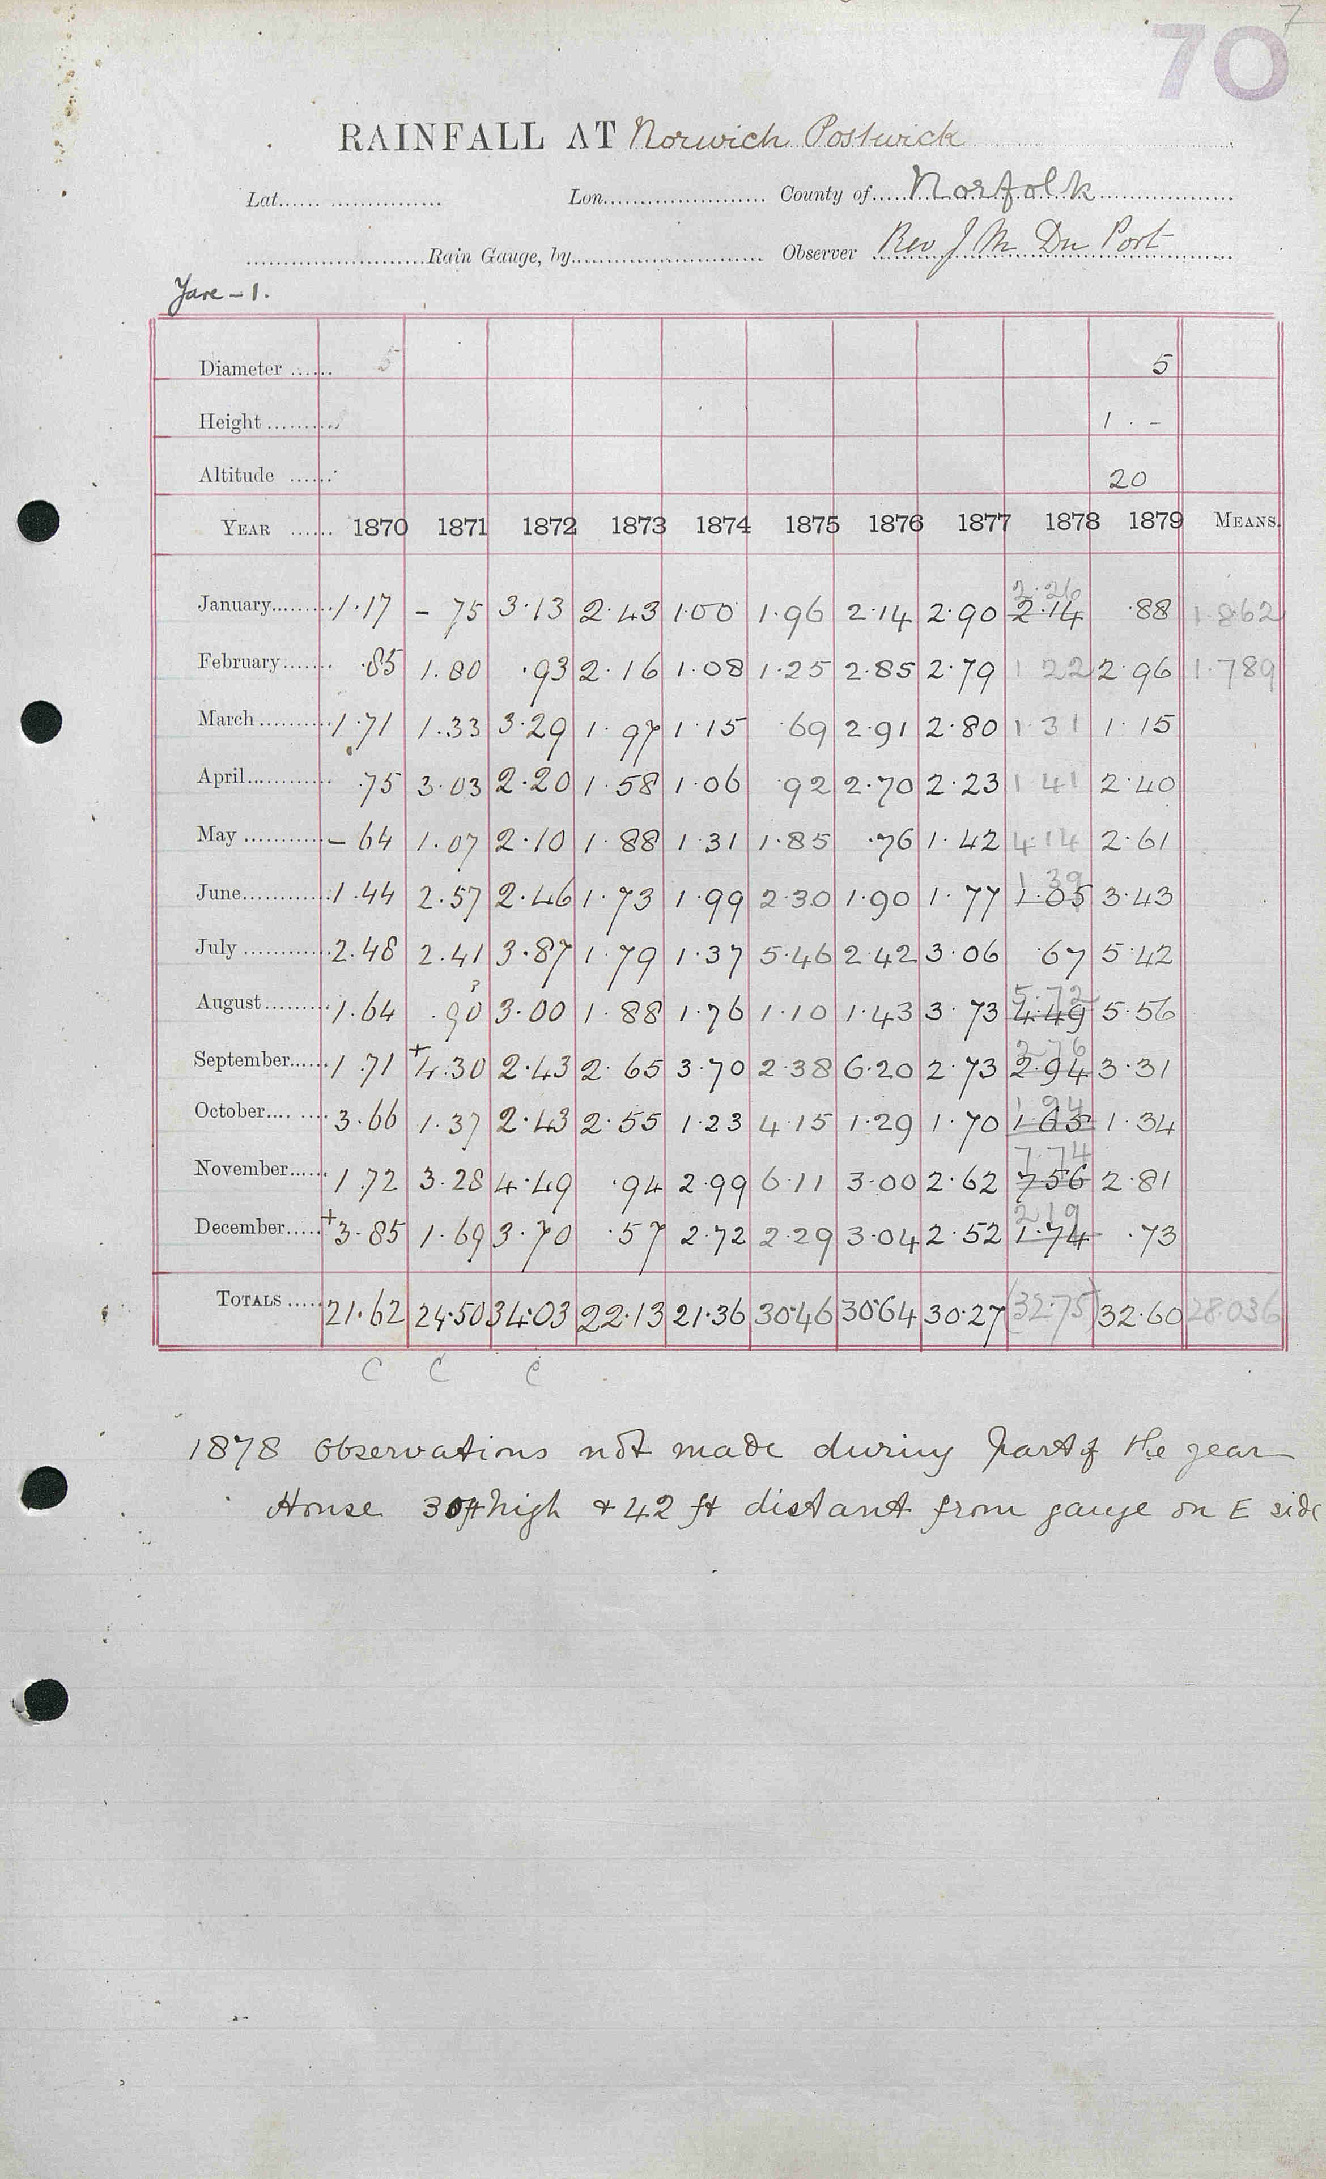 7
70
RAINFALL AT Norwich Postwick
Lat. Lon. County of Norfolk
Rain Gauge, by Observer Rev J M Du Port
Yare - 1.
Diameter 5 5
Height 1 . -
Altitude 20
YEAR 1870 1871 1872 1873 1874 1875 1876 1877 1878 1879 MEANS.
2.26
January 1.17 - 75 3.13 2.43 1.00 1.96 2.14 2.90 2.14 .88 1.862
February .85 1.80 .93 2.16 1.08 1.25 2.85 2.79 1 22 2.96 1.789
March 1.71 1.33 3.29 1.97 1.15 .69 2.91 2.80 1 31 1.15
April .75 3.03 2.20 1.58 1.06 .92 2.70 2.23 1 41 2.40
May - 64 1.07 2.10 1.88 1.31 1.85 .76 1.42 4.14 2.61
1 39
June 1.44 2.57 2.46 1.73 1.99 2.30 1.90 1.77 1.05 3.43
July 2.48 2.41 3.87 1.79 1.37 5.46 2.42 3.06 .67 5.42
? 5.72
August 1.64 .90 3.00 1.88 1.76 1.10 1.43 3.73 4.49 5.56
2 76
September 1.71 +4.30 2.43 2.65 3.70 2.38 6.20 2.73 2.94 3.31
1 94
October 3.66 1.37 2.43 2.55 1.23 4.15 1.29 1.70 1.63 1.34
7.74
November 1.72 3.28 4.49 .94 2.99 6.11 3.00 2.62 7.56 2.81
2 19
December +3.85 1.69 3.70 .57 2.72 2.29 3.04 2.52 1.74 .73
TOTALS 21.62 24.50 34.03 22.13 21.36 30.46 30.64 30.27 (32.75) 32.60 28.036
C C C
1878 Observations not made during part of the year
House 30ft high + 42 ft distant from gauge on E side